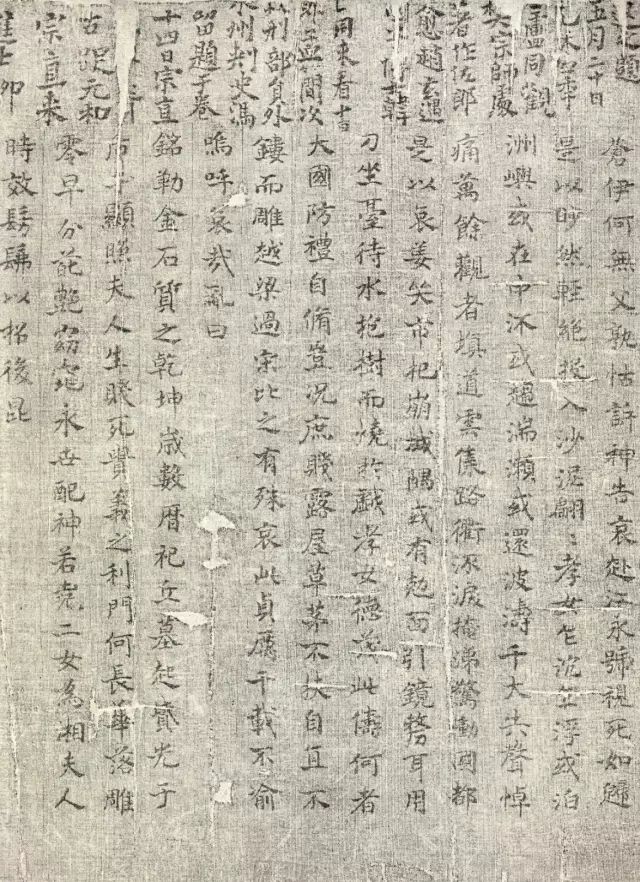 題
五月二十日
盧同觀
樊宗師處
著作佐郎
愈趙玄遇
韓
同來看十
間次
刑部員外
州刺史馮
留題于卷
十四日宗直
元和
宗直來
蒼伊何無父孰怙訴神告哀赴江永號視死如歸
是以眇然輕絕投入沙泥翩〻孝女乍沉乍浮或泊
洲嶼或在中流或趨湍瀨或還波濤千夫共聲悼
痛萬餘觀者填道雲集路衢泣淚掩涕驚動國都
是以哀姜哭市杞崩城隅或有尅面引鏡剺耳用
刀坐臺待水抱樹而燒於戲孝女德茂此儔何者
大國防禮自脩豈況庶賤露屋草茅不扶自直不
鏤而雕越梁過宋比之有殊哀此貞厲千載不渝
嗚呼哀哉亂曰
銘勒金石質之乾坤歲數曆祀丘墓起墳光于
后土顯照夫人生賤死貴義之利門何長華落雕
零早分葩艷窈窕永世配神若堯二女為湘夫人
時效髣髴以招後昆